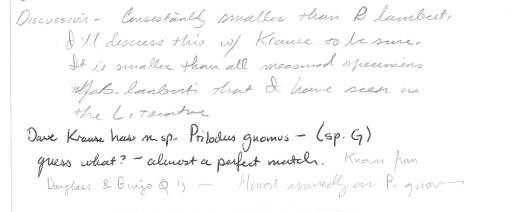 DISCUSSION - Consistantly smaller than B lamberti,
I'll discuss this w/ Krause to be sure.
It is smaller than all measured specimens
of B. lamberti that I have seen in
the Literature
Dave Krause has n. sp. Ptilodus gnomus - (sp. G)
guess what? - almost a perfect match. Known from
Douglass & Bingo Q's - Almost assuredly an P. gnomus